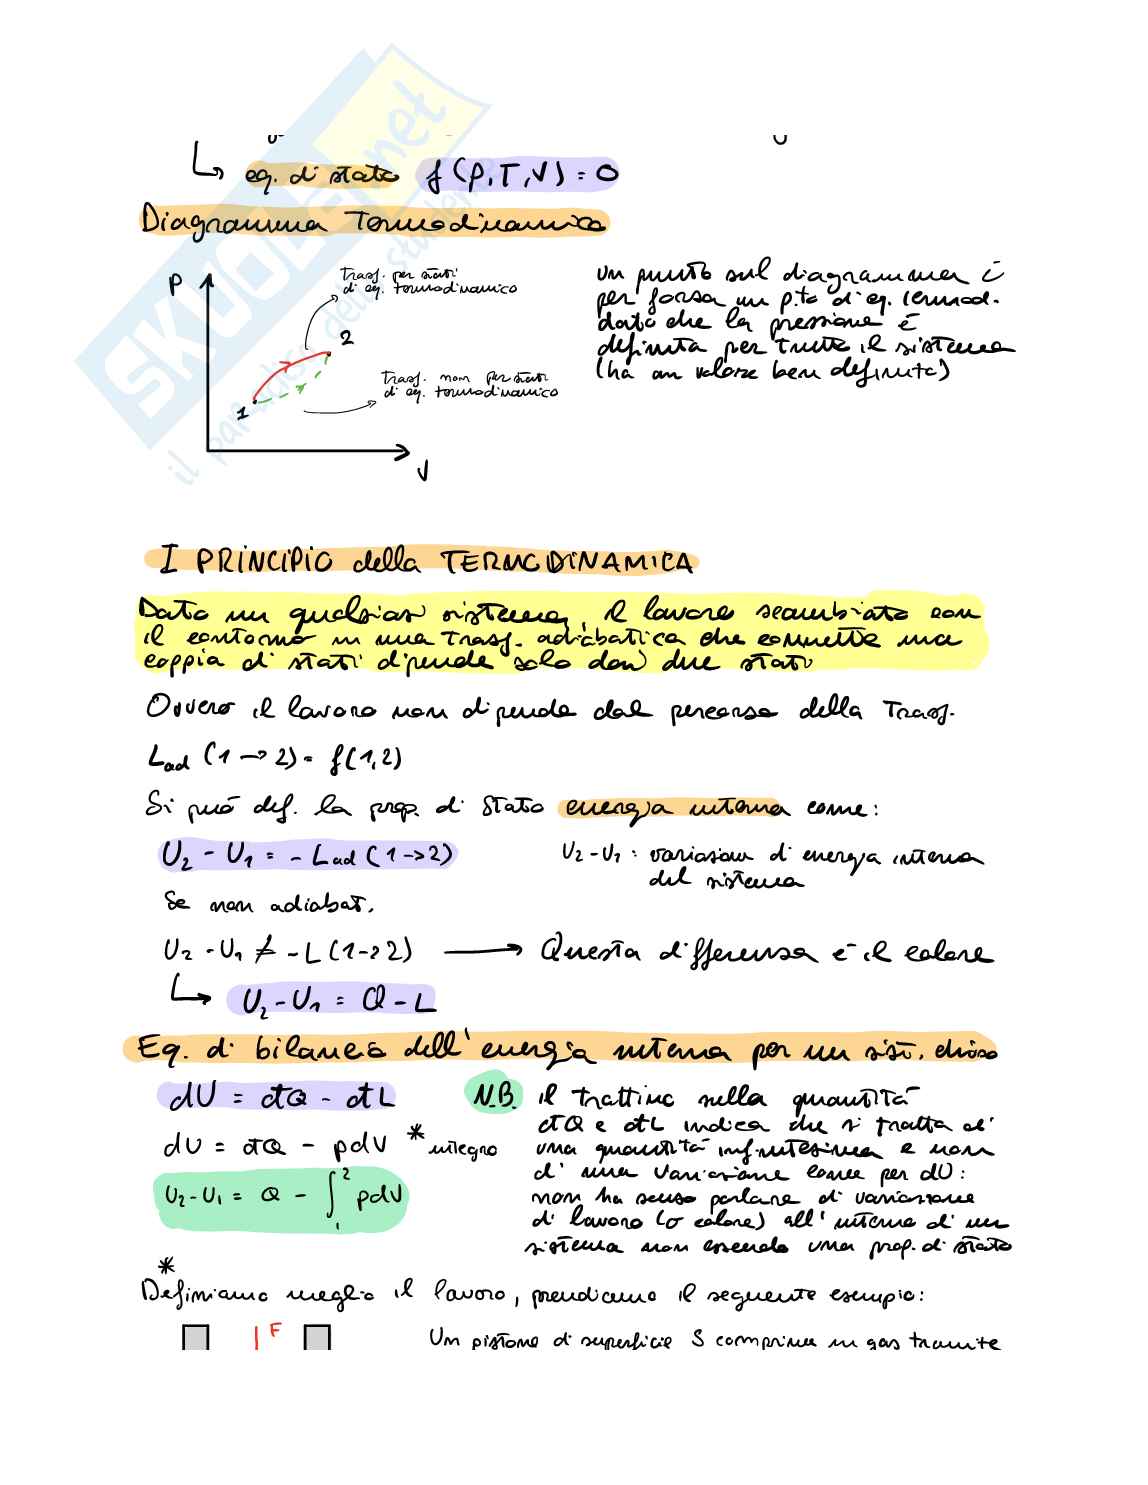 ↳ eq. di stato f(P,T,V)=0
Diagramma Termodinamico
P
trasf. per stati
di eq. termodinamico
2
trasf. non per stati
di eq. termodinamico
1
V
un punto sul diagramma è
per forza un p.to di eq. termod.
dato che la pressione è
definita per tutto il sistema
(ha un valore ben definito)
I PRINCIPIO della TERMODINAMICA
Dato un qualsiasi sistema, il lavoro scambiato con
il contorno in una trasf. adiabatica che connette una
coppia di stati dipende solo dai due stati
Ovvero il lavoro non dipende dal percorso della Trasf.
Lad (1→2) = f(1,2)
Si può def. la prop. di stato energia interna come:
U2 - U1 = - Lad (1->2)
U2-U1 : variazione di energia interna
del sistema
Se non adiabat.
U2 - U1 ≠ - L (1->2) → Questa differenza è il calore
↳ U2 - U1 = Q - L
Eq. di bilancio dell'energia interna per un sist. chiuso
dU = đQ - đL
dU = đQ - pdV * integro
U2 - U1 = Q - ∫₁² pdV
N.B. il trattino nella quantità
đQ e đL indica che si tratta di
una quantità infinitesima e non
di una variazione come per dU:
non ha senso parlare di variazione
di lavoro (o calore) all'interno di un
sistema non essendo una prop. di stato
*
Definiamo meglio il lavoro, prendiamo il seguente esempio:
F
Un pistone di superficie S comprime un gas tramite
SKUOLA.net
il paradiso dello studente